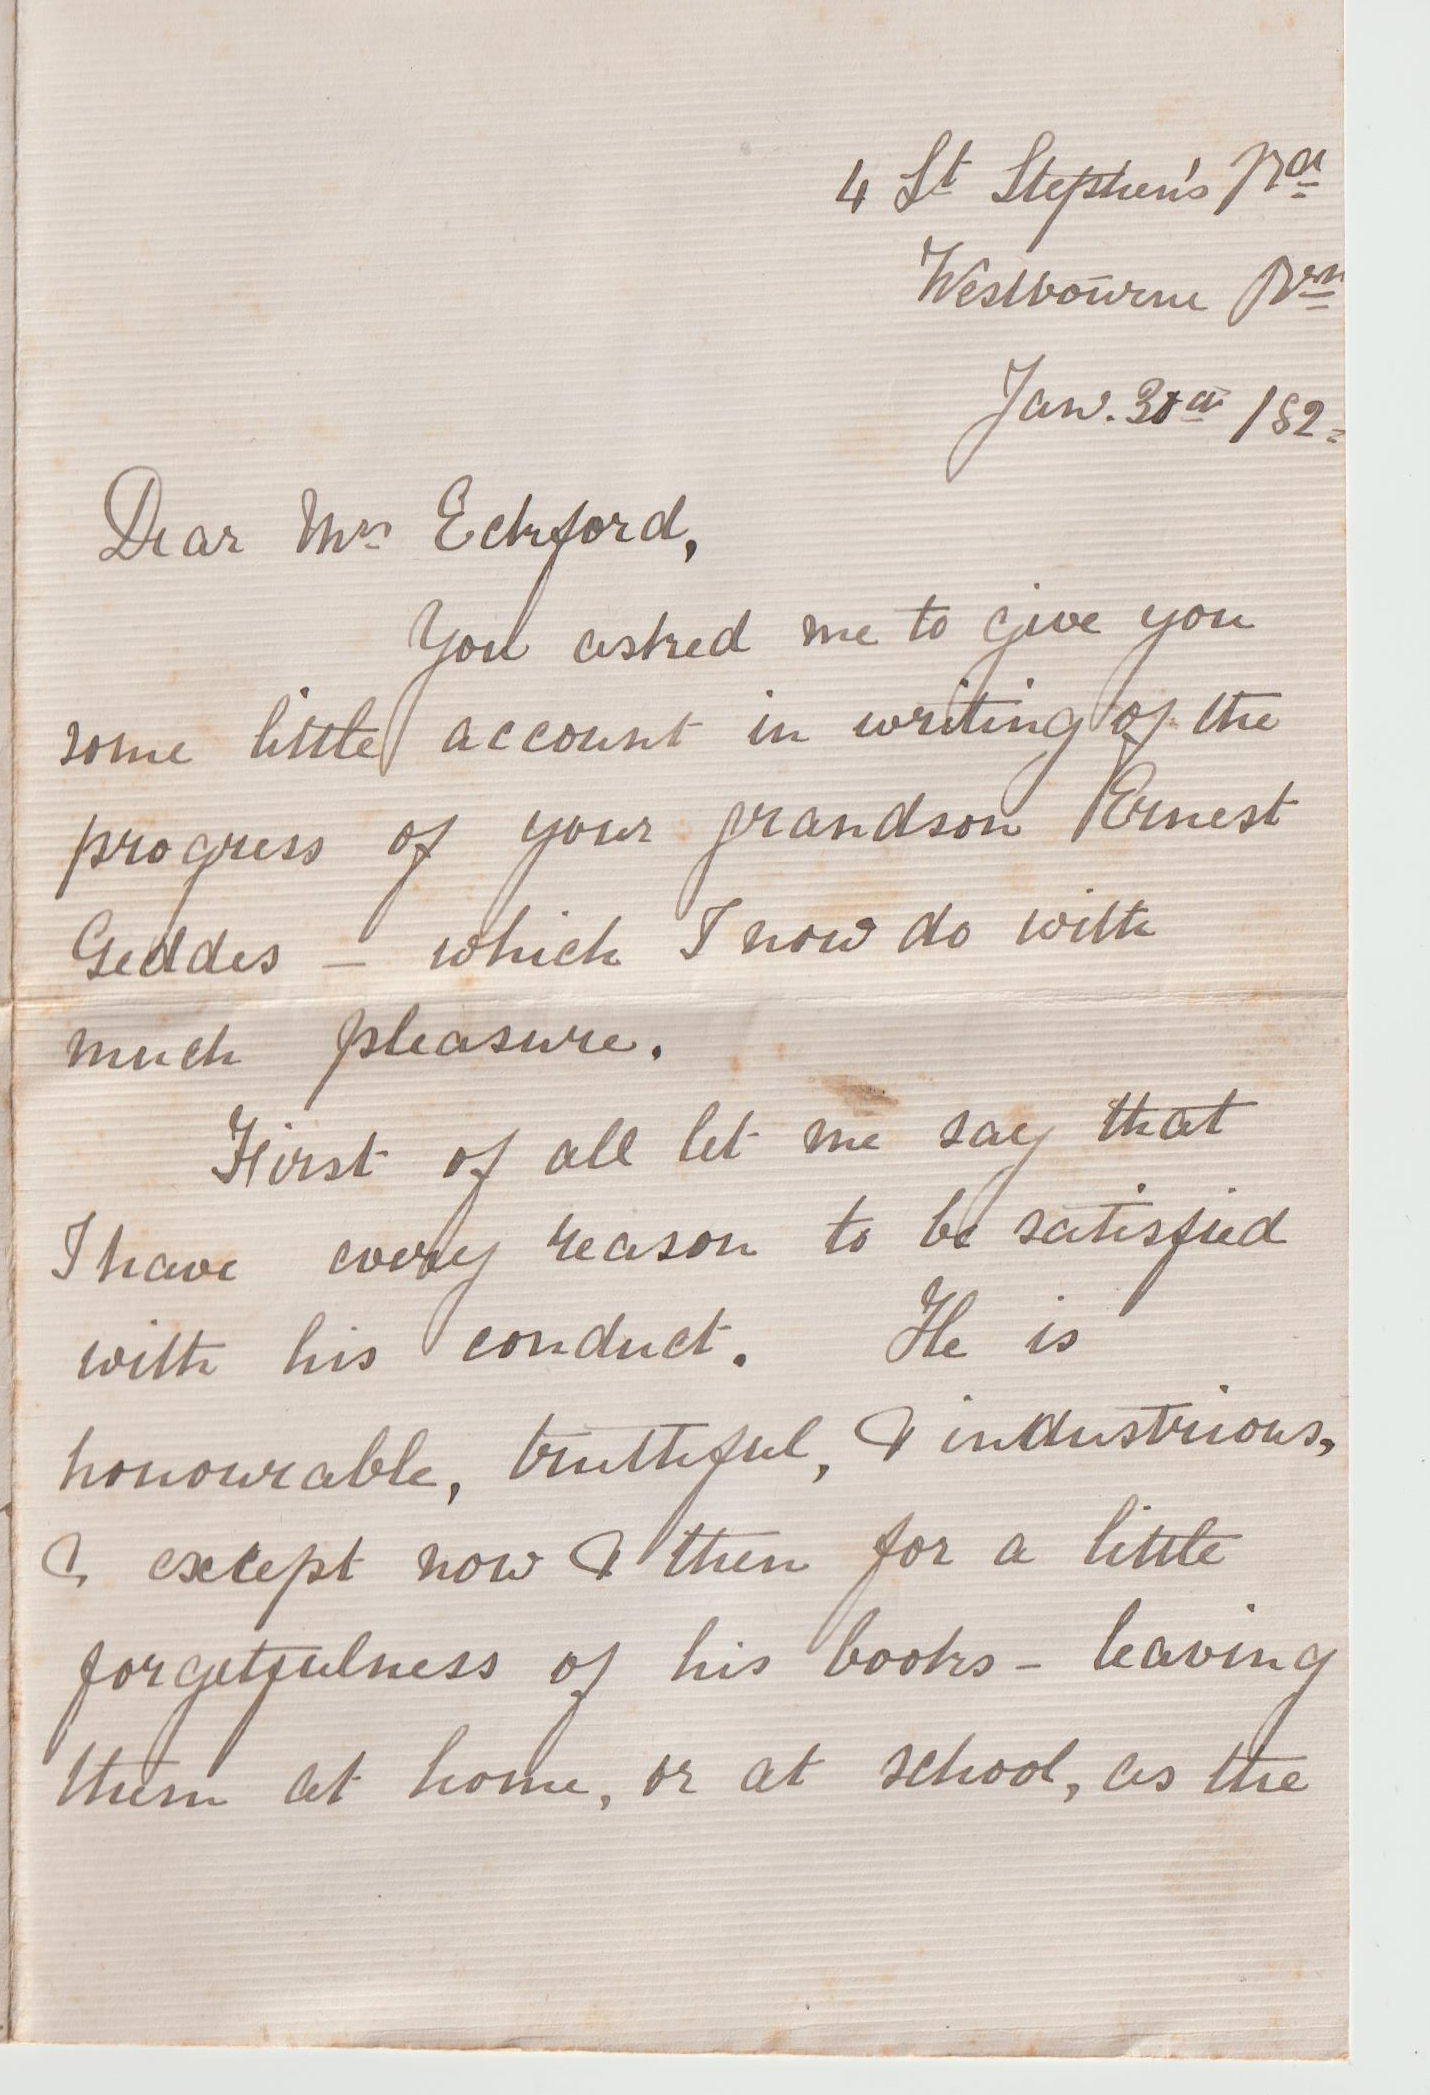 4 St Stephen's Rd
Westbourne Pk
Jan. 30th /82.
Dear Mrs Eckford,
You asked me to give you
some little account in writing of the
progress of your grandson Ernest
Geddes – which I now do with
much pleasure.
First of all let me say that
I have every reason to be satisfied
with his conduct. He is
honourable, truthful, & industrious,
& except now & then for a little
forgetfulness of his books – leaving
them at home, or at school, as the